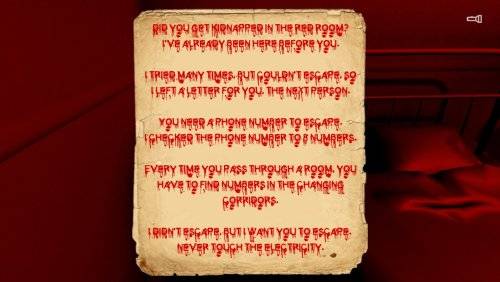 DID YOU GET KIDNAPPED IN THE RED ROOM?
I'VE ALREADY BEEN HERE BEFORE YOU.
I TRIED MANY TIMES, BUT COULDN'T ESCAPE, SO
I LEFT A LETTER FOR YOU, THE NEXT PERSON.
YOU NEED A PHONE NUMBER TO ESCAPE.
I CHECKED THE PHONE NUMBER TO 8 NUMBERS.
EVERY TIME YOU PASS THROUGH A ROOM, YOU
HAVE TO FIND NUMBERS IN THE CHANGING
CORRIDORS.
I DIDN'T ESCAPE, BUT I WANT YOU TO ESCAPE.
NEVER TOUCH THE ELECTRICITY.